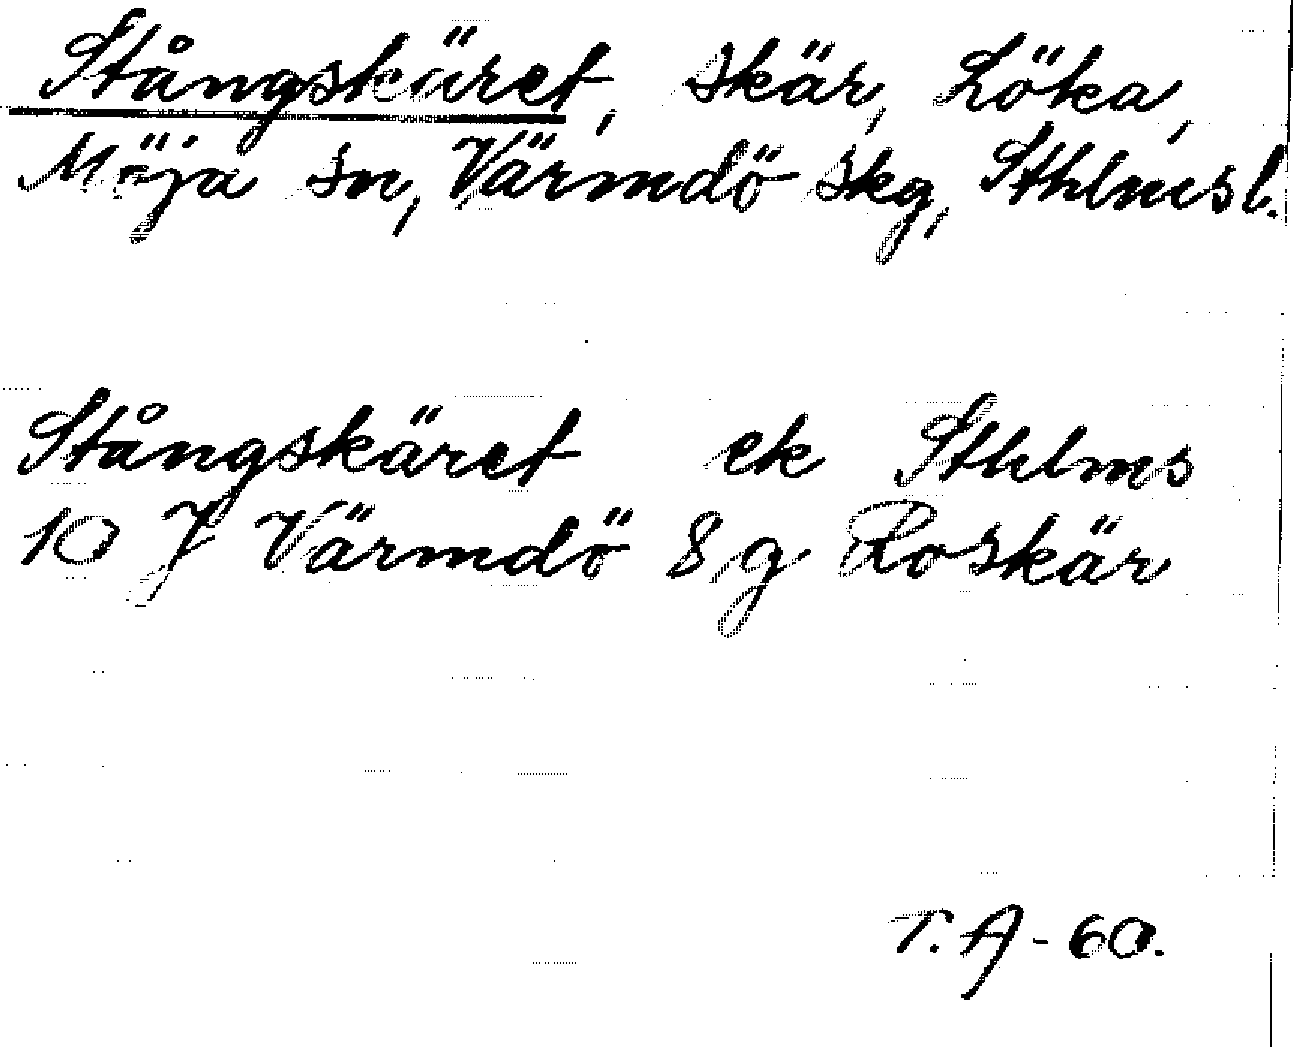 Stångskäret, skär, Löka,
Möja sn, Värmdö skg, Sthlms l.
Stångskäret ek Sthlms
10 J Värmdö 8 g Roskär
T. A - 60.